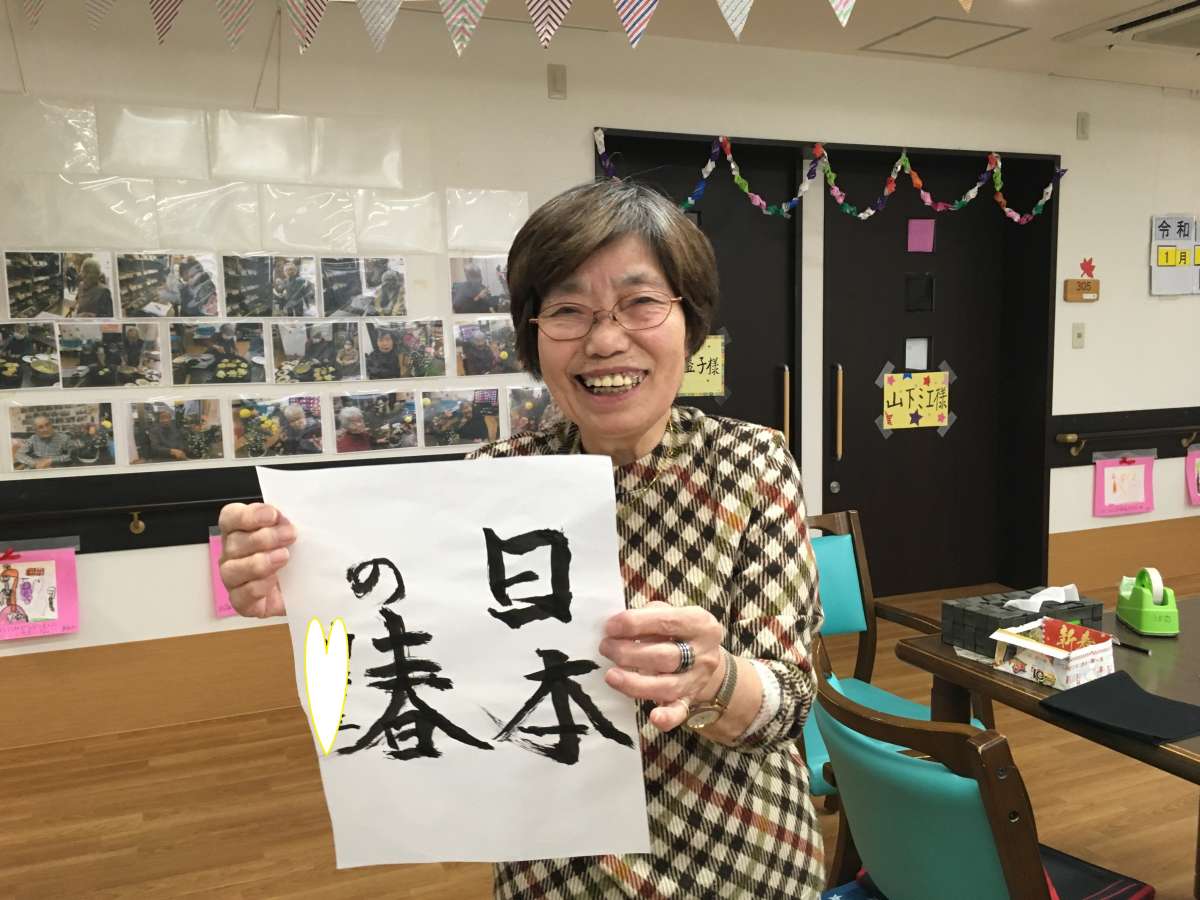 日本
の春
山下ミ江様
子様
305
令和
1月
新春